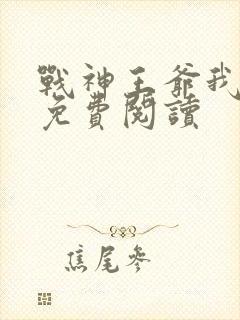 戰神王爺我
免費閱讀
焦尾參